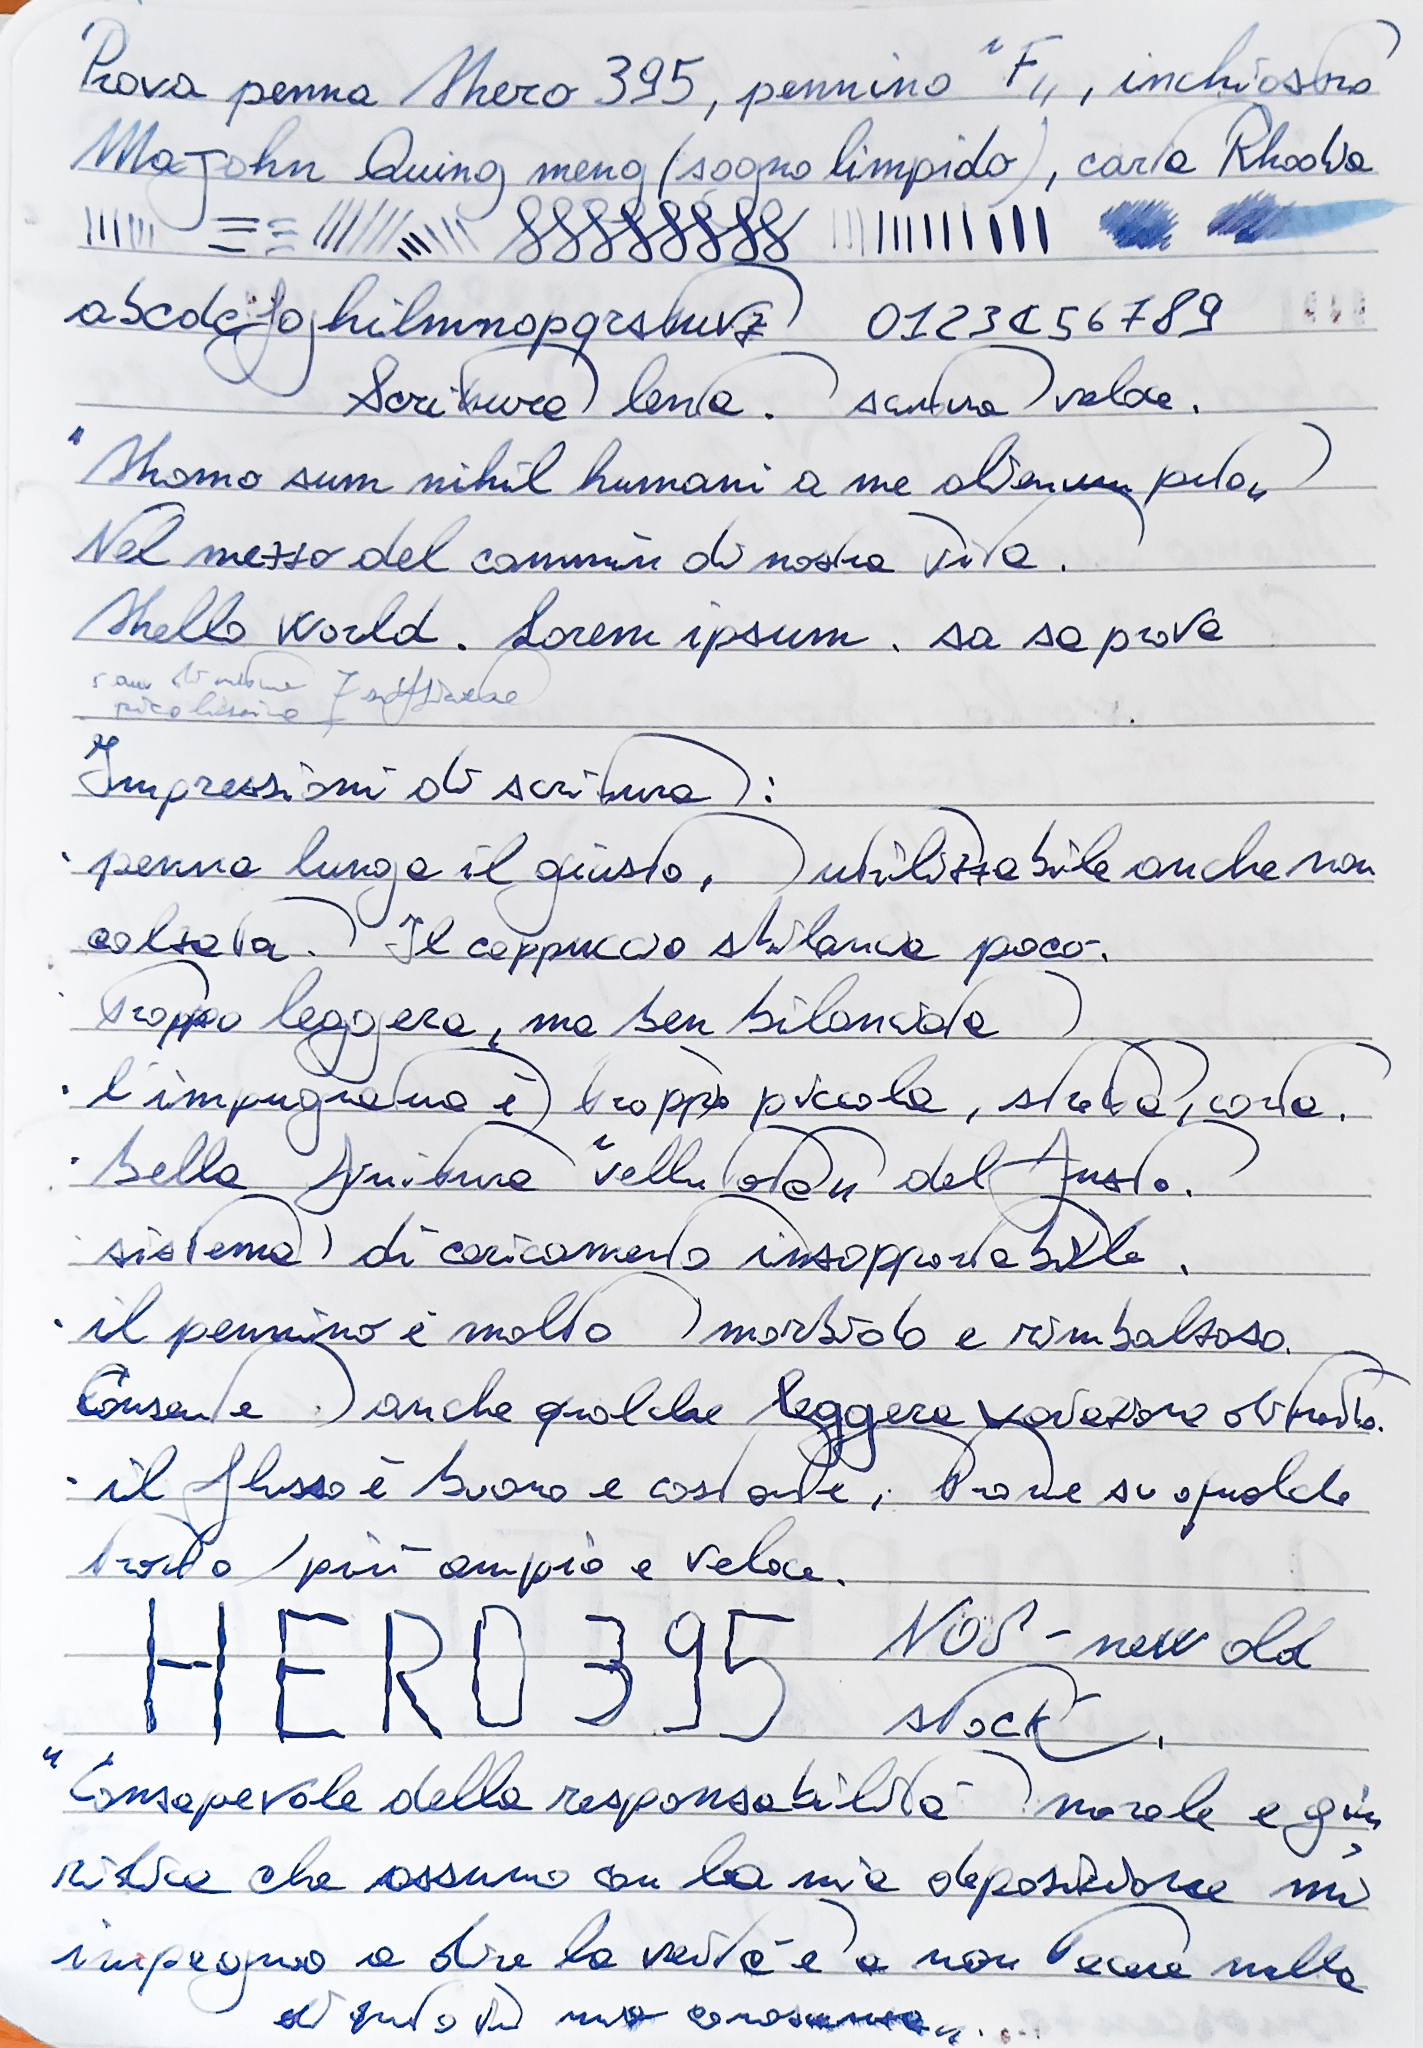 Prova penna Hero 395, pennino "F", inchiostro
Majohn Quing meng (sogno limpido), carta Rhodia
abcdefghilmnopqrstuvz 0123456789
Scrittura lenta. scrittura veloce.
"Homo sum nihil humani a me alienum puto"
Nel mezzo del cammin di nostra vita.
Hello World. Lorem ipsum. sa sa prova
piccolissime
Impressioni di scrittura:
· penna lunga il giusto, utilizzabile anche non
calzata. Il cappuccio sbilancia poco.
· troppo leggera, ma ben bilanciata
· l'impugnatura è troppo piccola, stretta, corta.
· bella finitura "vellutata" del fusto.
· sistema di caricamento insopportabile.
· il pennino è molto morbido e rimbalzoso.
Consente anche qualche leggera variazione di tratto.
· il flusso è buono e costante, tranne su qualche
tratto più ampio e veloce.
HERO 395 NOS - new old
stock.
"Consapevole della responsabilità morale e giu
ridica che assumo con la mia deposizione mi
impegno a dire la verità e a non tacere nulla
di quanto a mia conoscenza"...